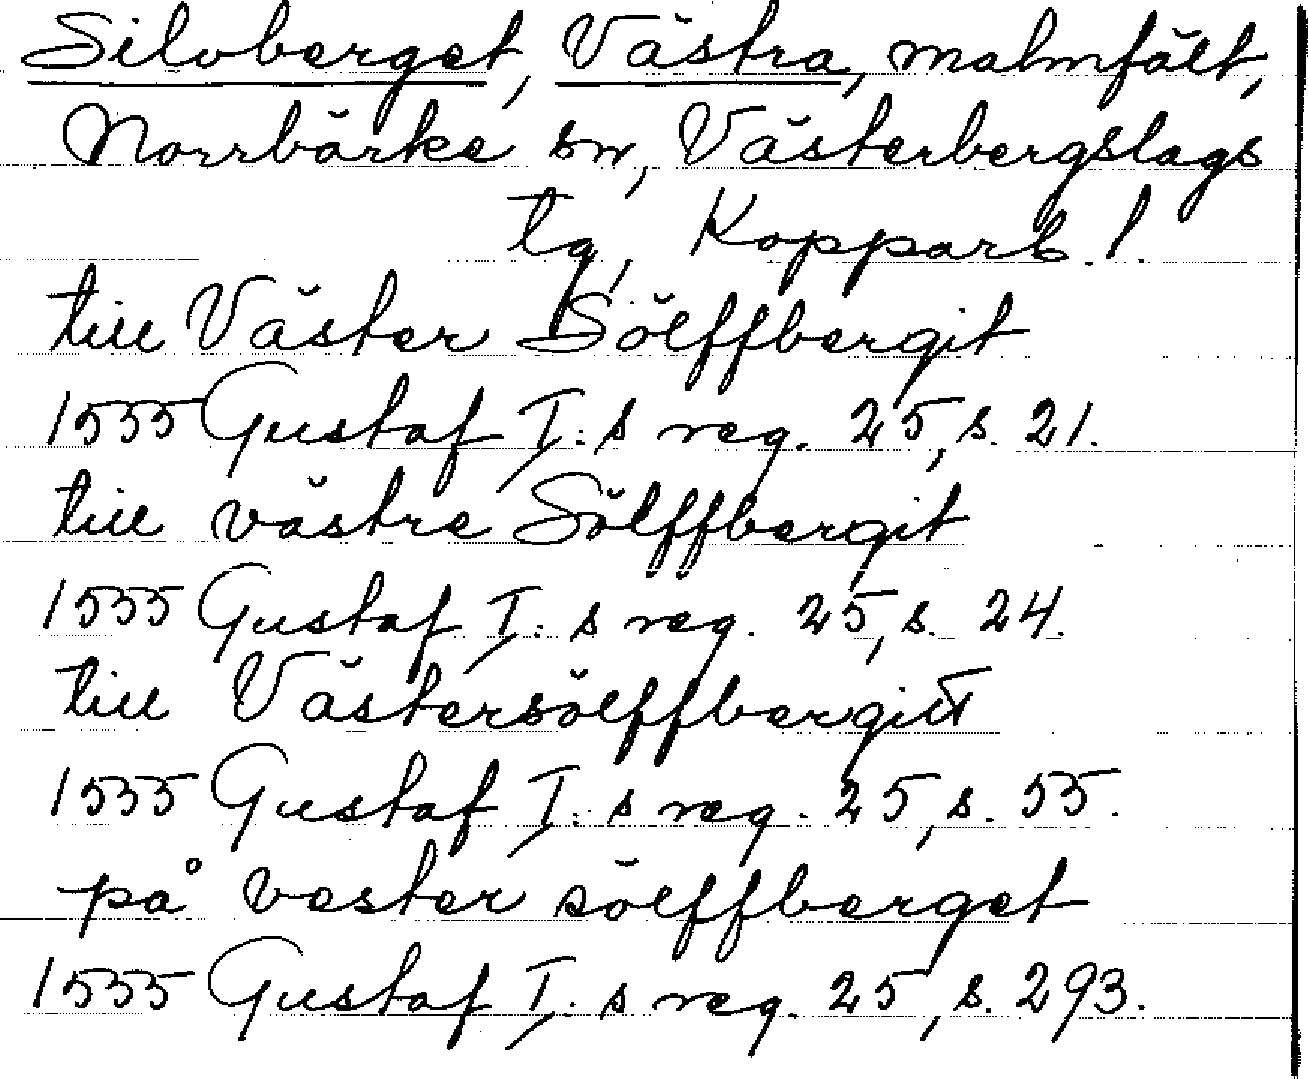 Silvberget, Västra, malmfält,
Norrbärke sn, Västerbergslags
tg, Kopparb. l.
till Väster Sölffbergit
1555 Gustaf I:s reg. 25, s. 21.
till västre Sölffbergit
1555 Gustaf I:s reg. 25, s. 24.
till Västersölffbergitt
1555 Gustaf I:s reg. 25, s. 55.
på vester sölffberget
1555 Gustaf I:s reg. 25, s. 293.